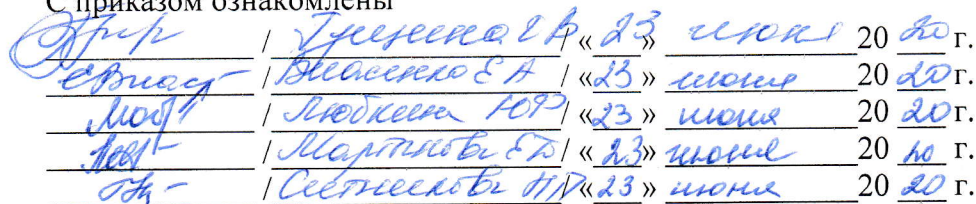 С приказом ознакомлены
/ Гущина Г В / « 23 » июня 20 20 г.
/ Власенко Е А / « 23 » июня 20 20 г.
/ Любкина Ю Р / « 23 » июня 20 20 г.
/ Мартынова Е В / « 23 » июня 20 20 г.
/ « 23 » июня 20 20 г.